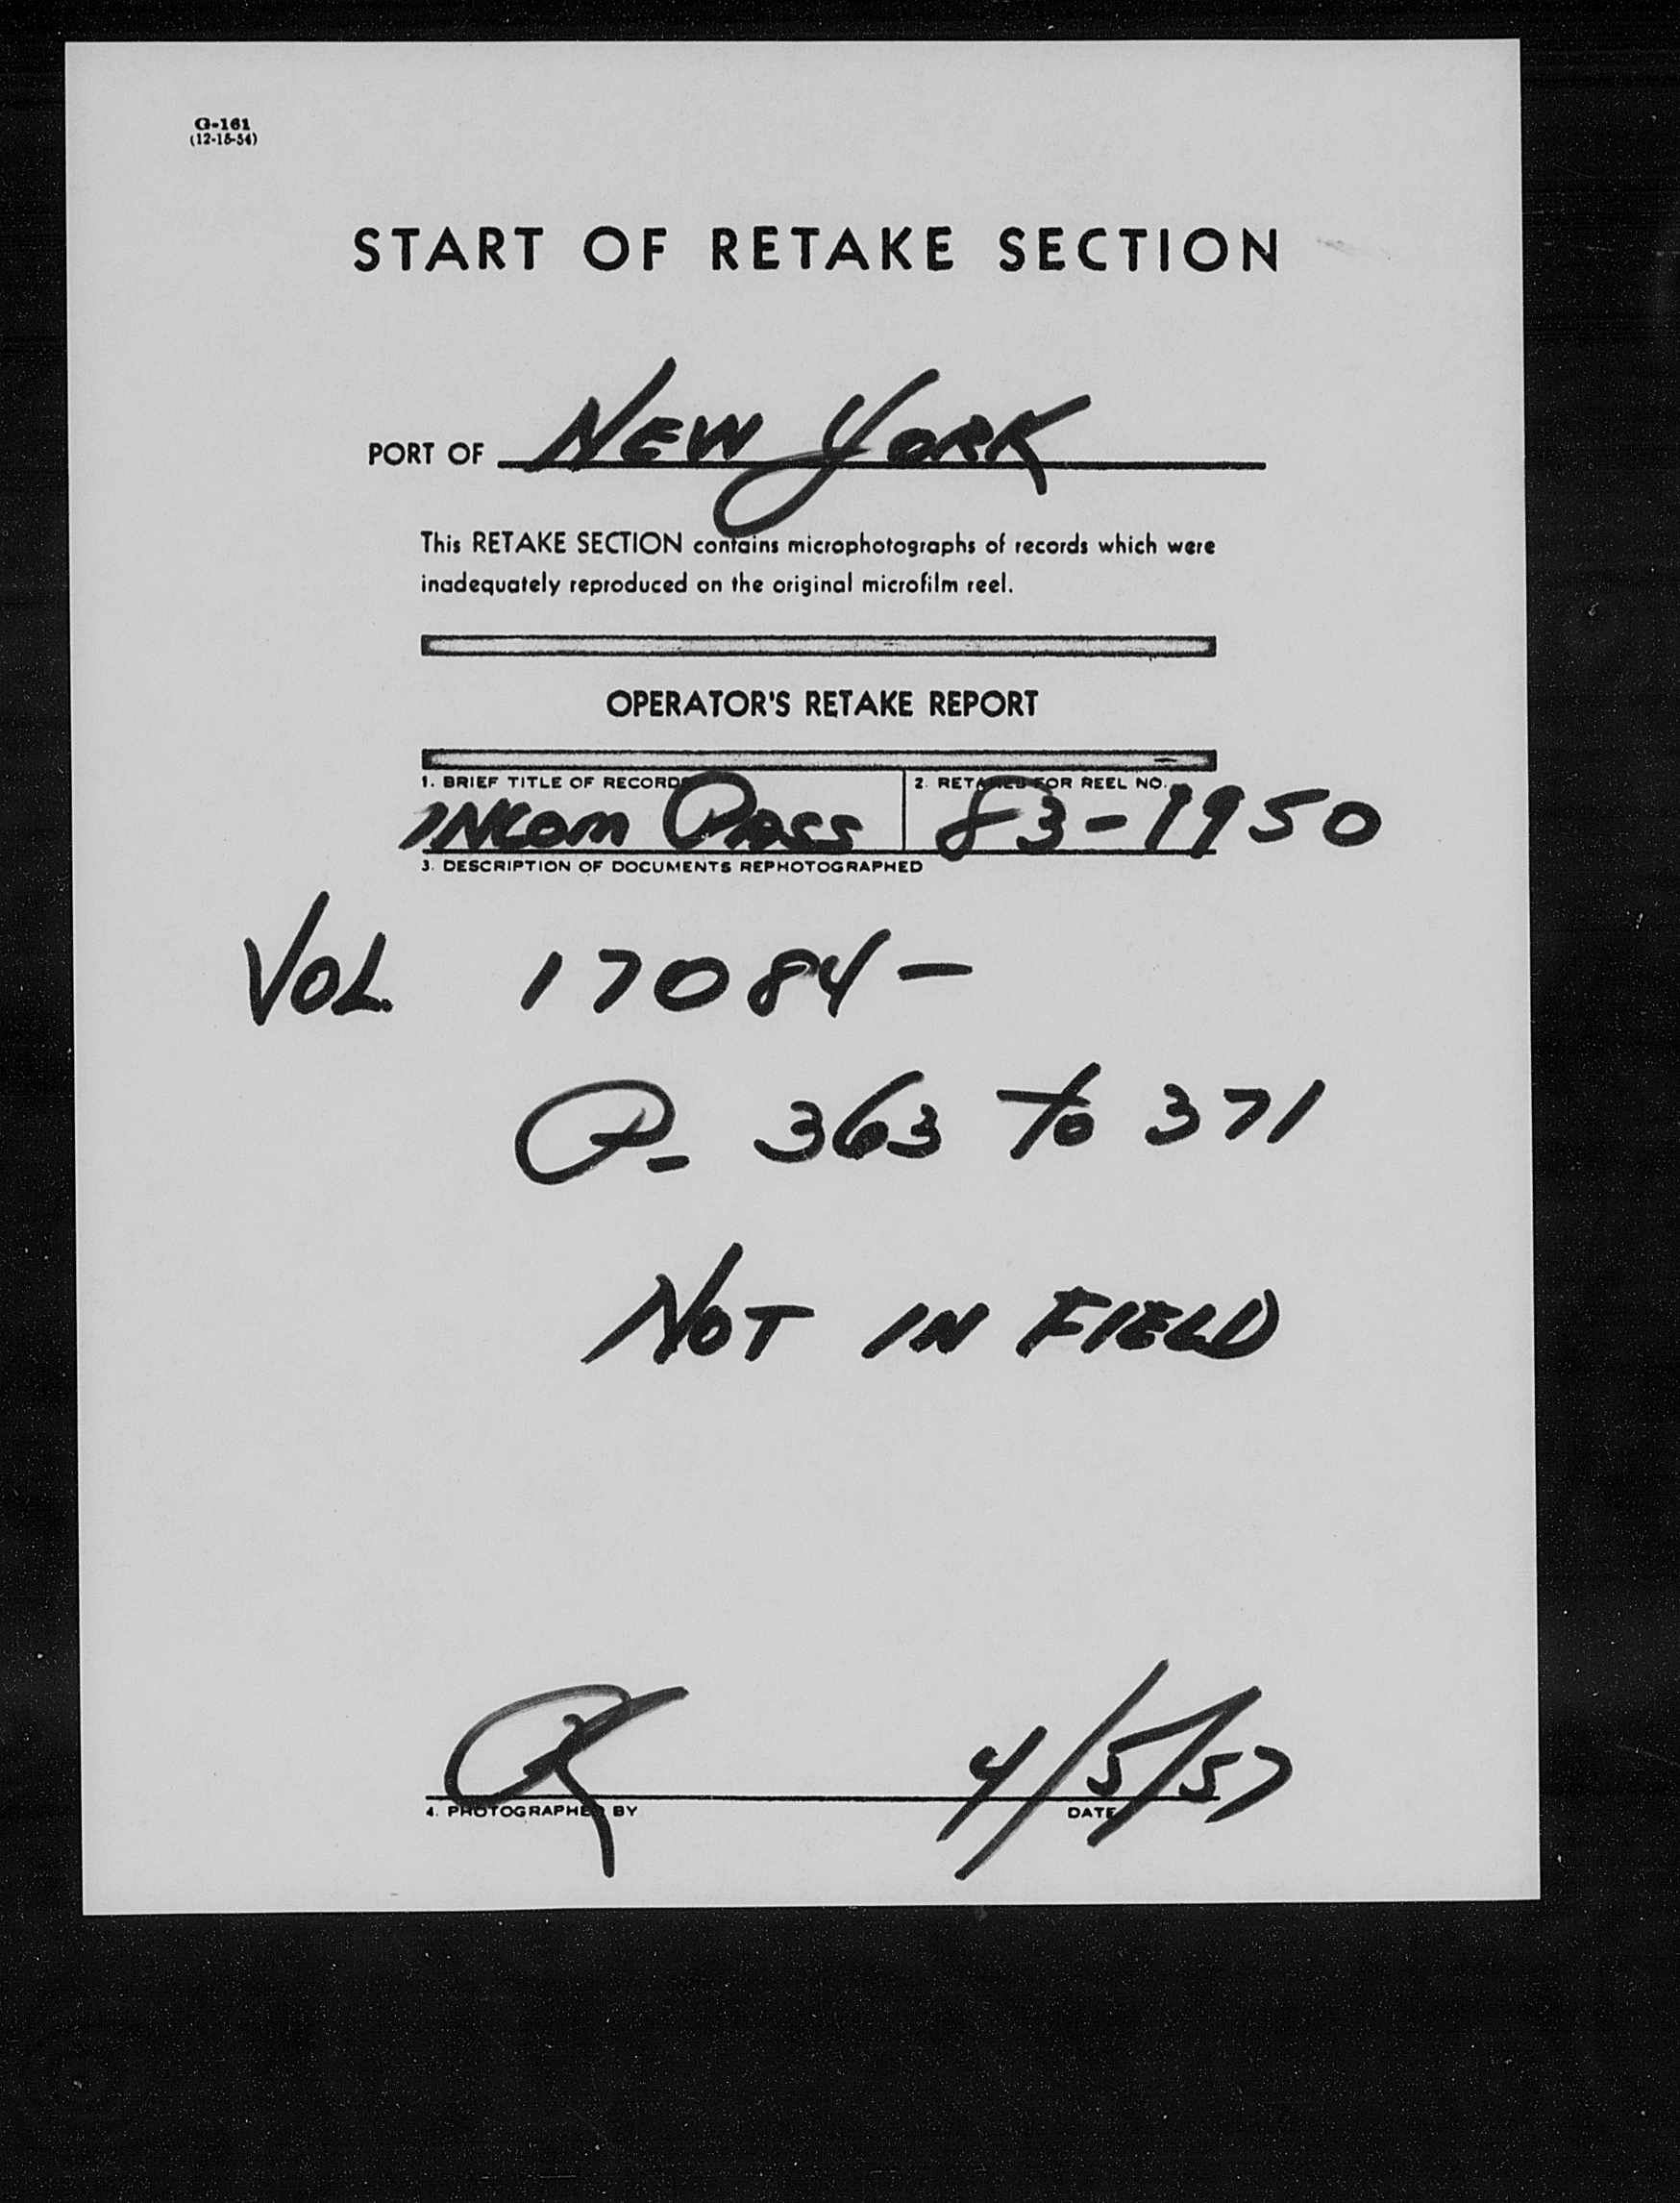 G-161
(12-15-54)
START OF RETAKE SECTION
PORT OF NEW YORK
This RETAKE SECTION contains microphotographs of records which were
inadequately reproduced on the original microfilm reel.
OPERATOR'S RETAKE REPORT
1. BRIEF TITLE OF RECORDS 2. RETAKES FOR REEL NO.
INCOM PASS 83-1950
3. DESCRIPTION OF DOCUMENTS REPHOTOGRAPHED
VOL. 17084-
P- 363 to 371
NOT IN FIELD
4/5/57
4. PHOTOGRAPHED BY DATE